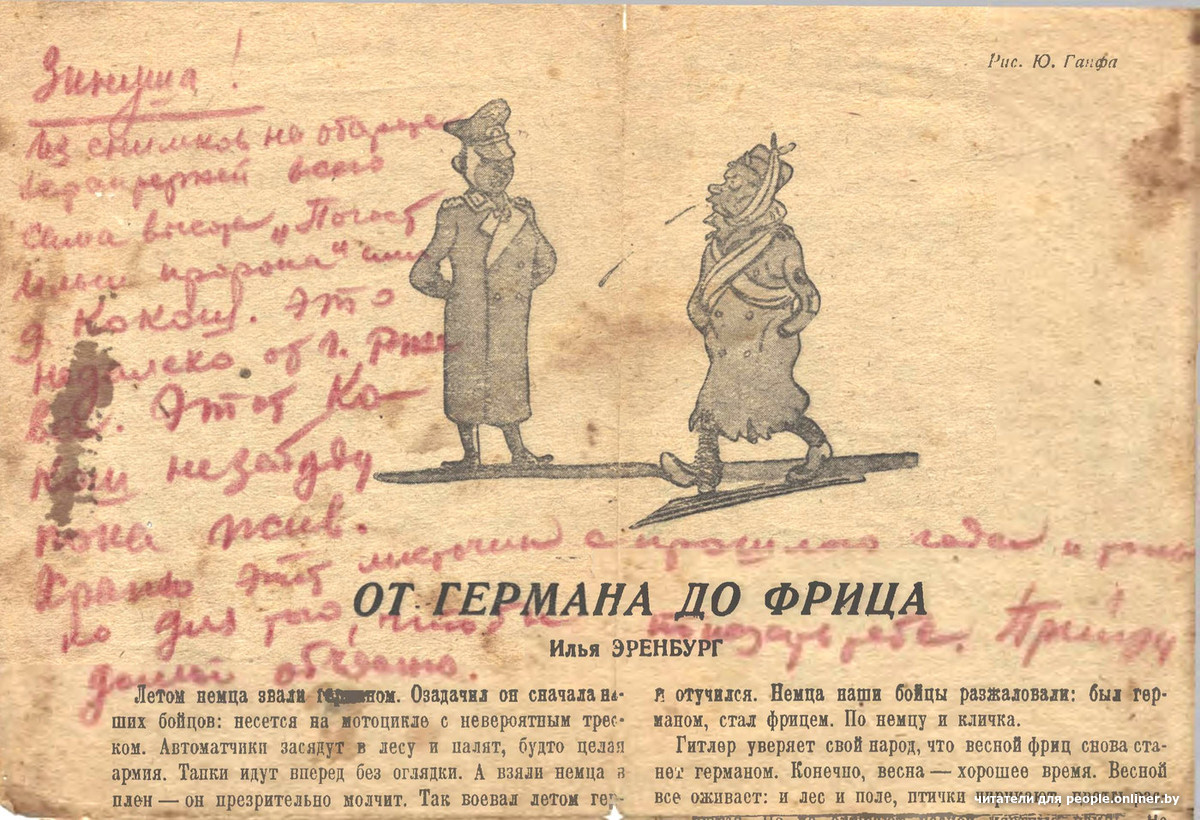 Рис. Ю. Ганфа
Зинуша!
Из снимков на обороте
сама высота „Погост
Ильи пророка" или
д. Кокош. Это
недалеко от г. Рже
ва. Этот Ко-
кош не забуду
пока жив.
Храню этот листочек с прошлого года и толь
ко для того, чтобы показать тебе. Прийду
домой объясню.
ОТ ГЕРМАНА ДО ФРИЦА
Илья ЭРЕНБУРГ
Летом немца звали германом. Озадачил он сначала на-
ших бойцов: несется на мотоцикле с невероятным трес-
ком. Автоматчики засядут в лесу и палят, будто целая
армия. Танки идут вперед без оглядки. А взяли немца в
плен — он презрительно молчит. Так воевал летом гер-
и отучился. Немца наши бойцы разжаловали: был гер-
маном, стал фрицем. По немцу и кличка.
Гитлер уверяет свой народ, что весной фриц снова ста-
нет германом. Конечно, весна — хорошее время. Весной
все оживает: и лес и поле, птички чирикают
читатели для people.onliner.by